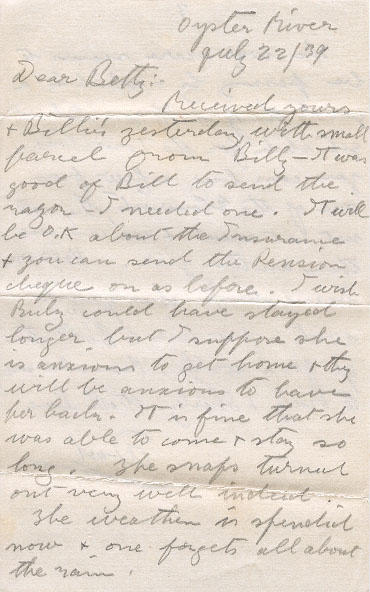 Oyster River
July 22/39
Dear Betty:-
Received yours
+ Billie's yesterday, with small
parcel from Billy - It was
good of Bill to send the
razor - I needed one. It will
be O.K about the Insurance
+ you can send the Pension
cheque on as before. I wish
Ruby could have stayed
longer, but I suppose she
is anxious to get home + they
will be anxious to have
her back. It is fine that she
was able to come + stay so
long. The snaps turned
out very well indeed.
The weather is splendid
now + one forgets all about
the rain.